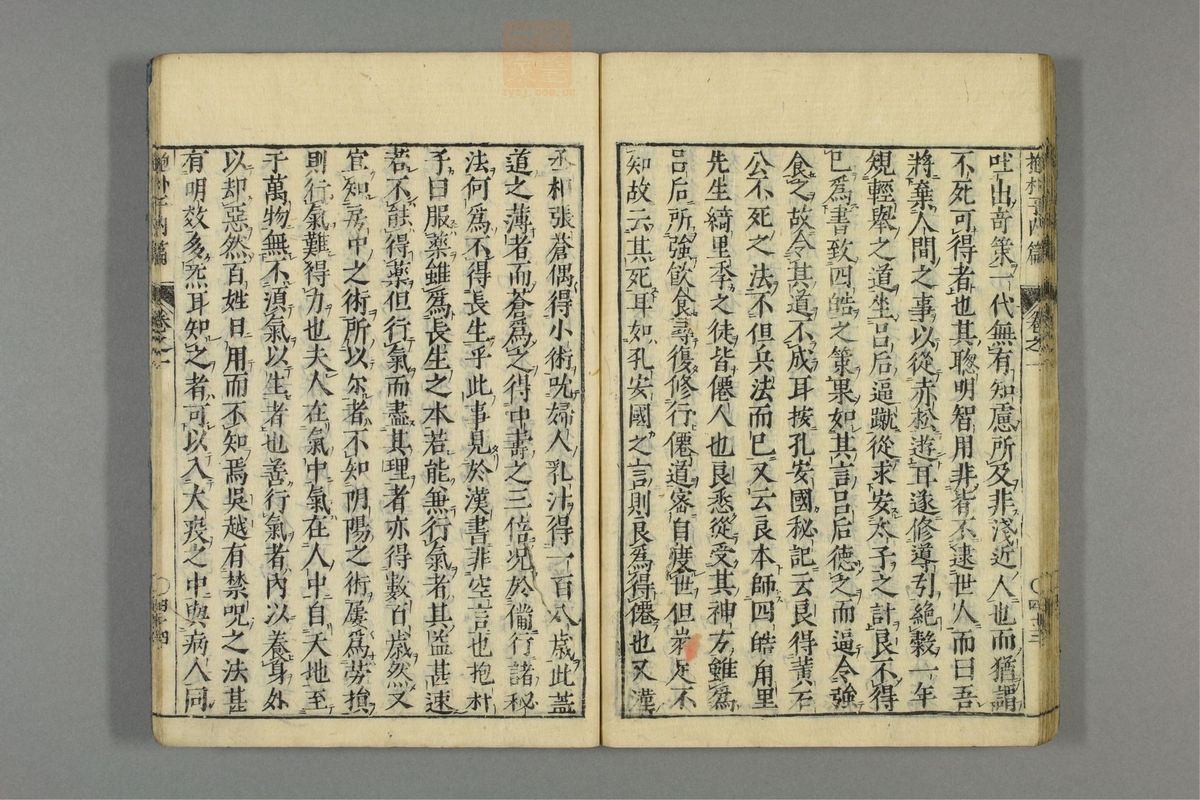 吐出奇策一代無有知慮所及非淺近人也而猶謂
不死可得者也其聰明智用非皆不逮世人而曰吾
將棄人間之事以從赤松遊耳遂修導引絶穀一年
規輕舉之道坐呂后逼蹴從求安太子之計良不得
已爲書致四皓之策果如其言呂后德之而逼令強
食之故令其道不成耳按孔安國秘記云良得黃石
公不死之法不但兵法而已又云良本師四皓甪里
先生綺里季之徒皆僊人也良悉從受其神方雖爲
呂后所強飲食尋復修行僊道密自度世但世人不
知故云其死耳如孔安國之言則良爲得僊也又漢
丞相張蒼偶得小術吮婦人乳汁得一百八歲此蓋
道之薄者而蒼爲之得中壽之三倍况於備行諸秘
法何爲不得長生乎此事見於漢書非空言也抱朴
子曰服藥雖爲長生之本若能無行氣者其益甚速
若不能得藥但行氣而盡其理者亦得數百歲然又
宜知房中之術所以尔者不知阴陽之術屢爲勞損
則行氣難得力也夫人在氣中氣在人中自天地至
于萬物無不湏氣以生者也善行氣者內以養身外
以却惡然百姓日用而不知焉吳越有禁呪之法甚
有明效多炁耳知之者可以入大疫之中與病人同